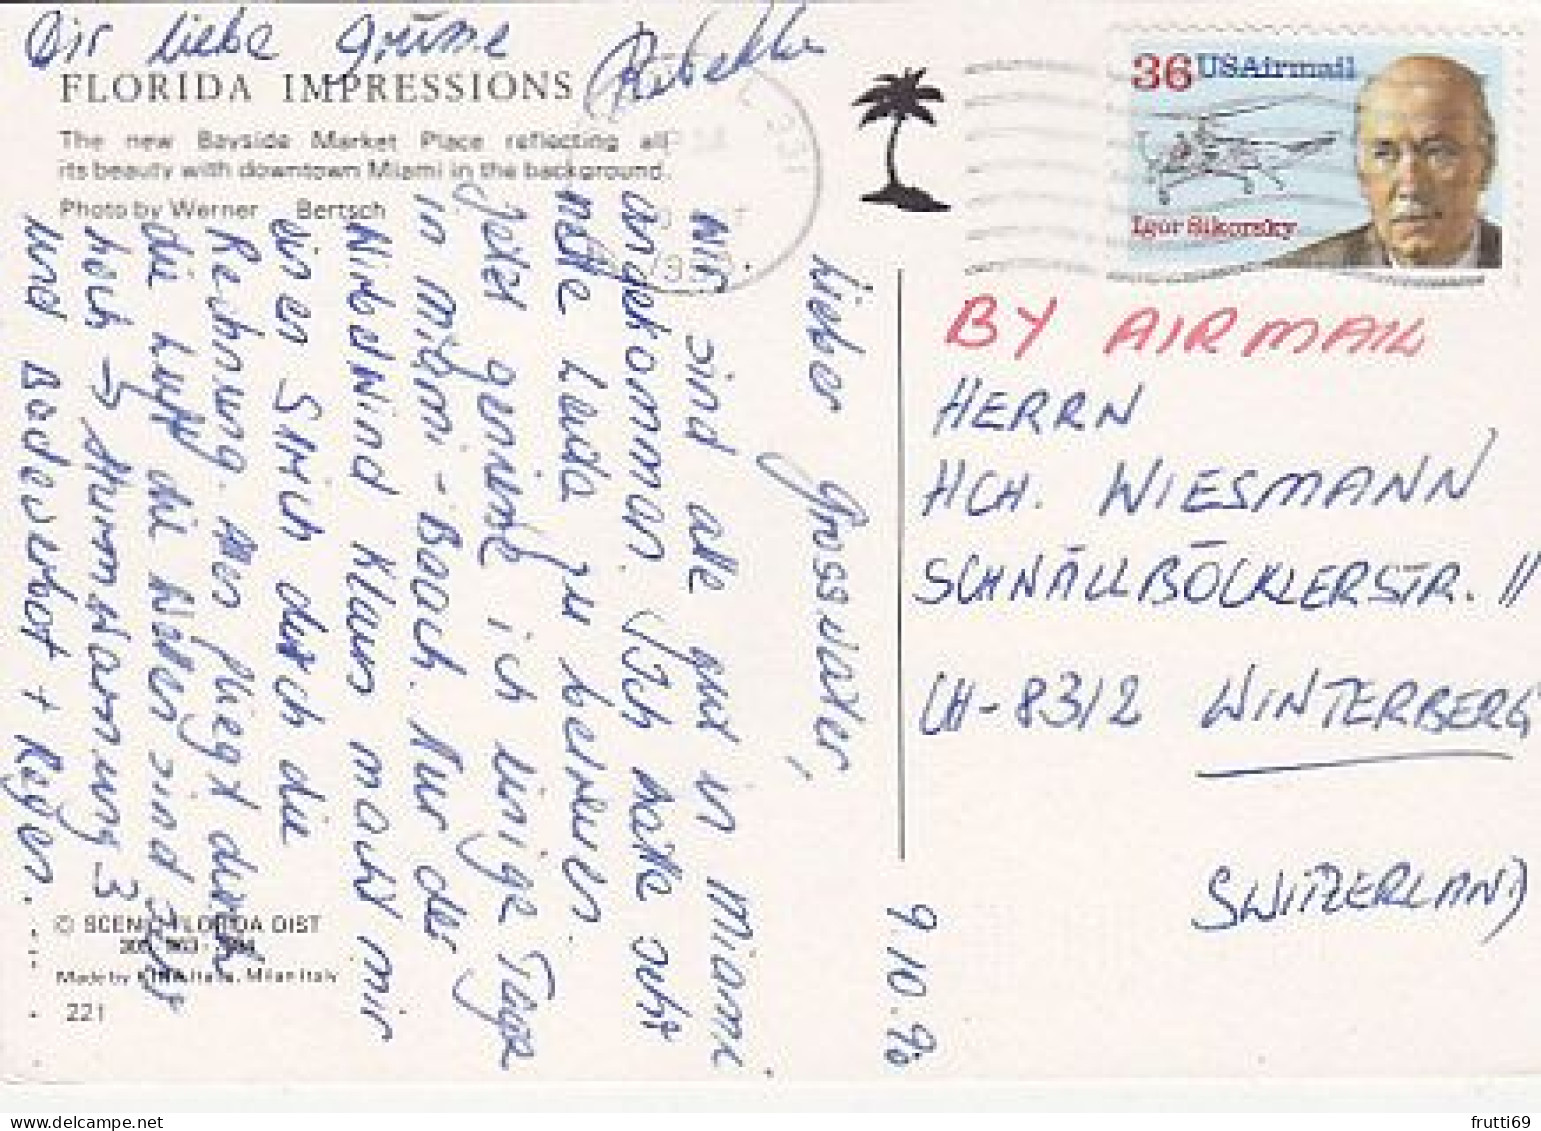 Dir liebe Grüsse
Rebekka
FLORIDA IMPRESSIONS
The new Bayside Market Place reflecting all
its beauty with downtown Miami in the background.
Photo by Werner Bertsch
9.10.90
Lieber Grossvater,
Wir sind alle gut in Miami
angekommen. Ich hatte sehr
nette Leute zu betreuen.
Jetzt geniesse ich einige Tage
in Miami-Beach. Nur der
Wirbelwind Klaus macht mir
einen Strich durch die
Rechnung. Man fliegt durch
die Luft die Wellen sind
hoch → Sturmwarnung 3
und Badeverbot + Regen.
© SCENIC FLORIDA DIST
Made by KINA Italia, Milan Italy
221
36 USAirmail
Igor Sikorsky
BY AIRMAIL
HERRN
HCH. WIESMANN
SCHNÄLLBÖCKLERSTR. 11
CH-8312 WINTERBERG
SWITZERLAND
frutti69